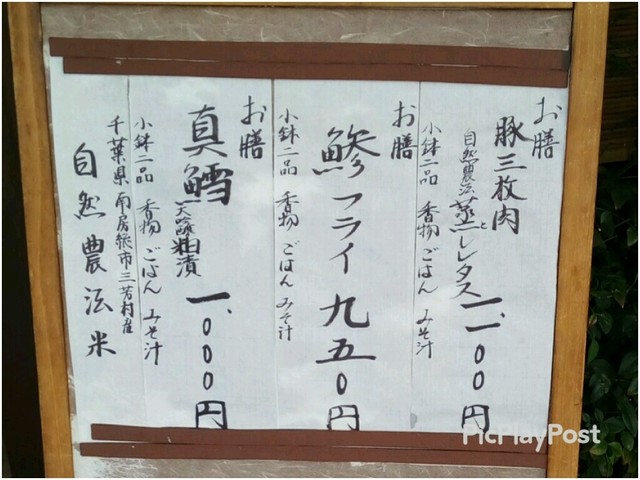 お膳
豚三枚肉
自然農法蒸しレタスと
一、一〇〇円
小鉢二品 香物 ごはん みそ汁
お膳
鯵フライ 九五〇円
小鉢二品 香物 ごはん みそ汁
お膳
真鱈大吟醸粕漬 一、〇〇〇円
小鉢二品 香物 ごはん みそ汁
千葉県南房総市三芳村産
自然農法米
PicPlayPost